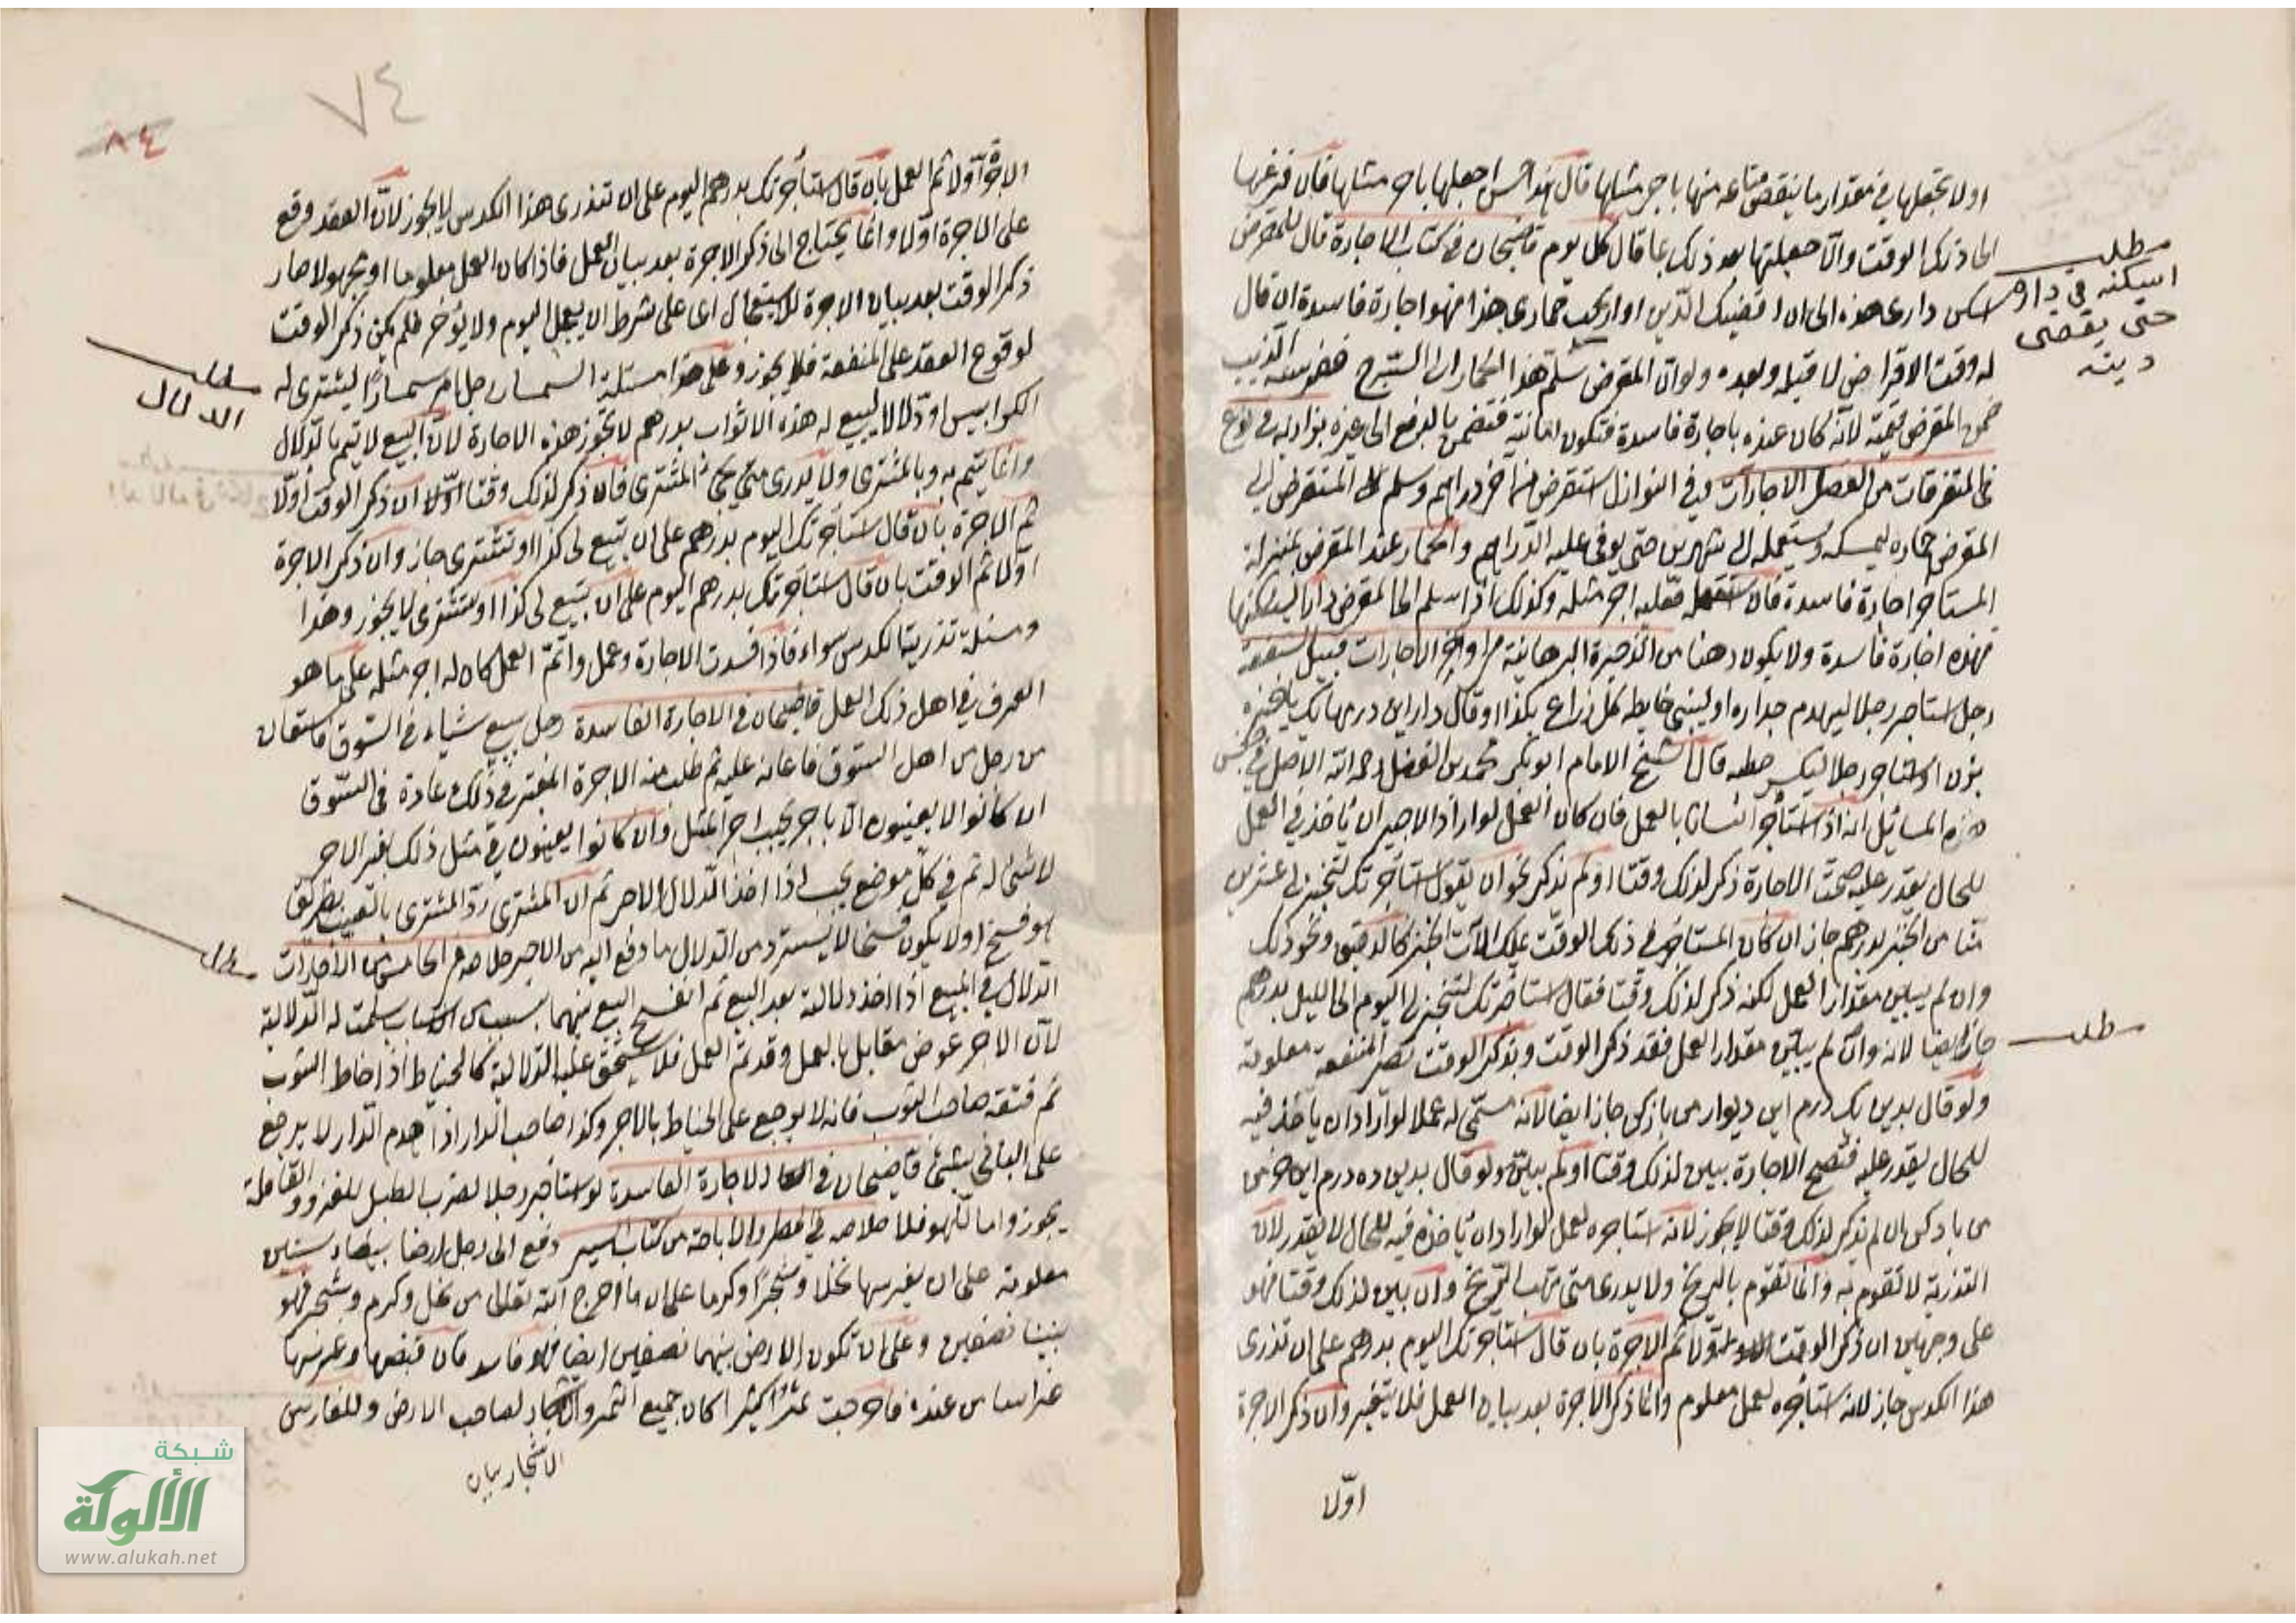 اولا تجعلها في مقدار ما ينقص متاعه منها باجر مثلها قال هذا احسن اجعلها باجر مثلها فان فرغها
الى ذلك الوقت والا جعلتها بعد ذلك بما قال كل يوم قاضيخان في كتاب الاجارة قال للمقرض
اسكن دارى هذه الى ان اقضيك الدين او اركب حمارى هذا فهو اجارة فاسدة ان قال
له وقت الاقراض لا قبله وبعده ولو ان المقرض سلم هذا الحمار الى السرح فعقره الذئب
ضمن المقرض قيمته لانه كان عنده باجارة فاسدة فتكون امانة فتضمن بالدفع الى غيره بزازيه في نوع
في المتفرقات من الفصل الاجارات وفي النوازل استقرض من اخر دراهم وسلم المستقرض الى
المقرض حماره ليمسكه ويستعمله الى شهرين حتى يوفى عليه الدراهم والحمار عند المقرض بمنزلة
المستاجر اجارة فاسدة فان استعمله فعليه اجر مثله وكذلك اذا سلم الى المقرض دارا ليسكنها
فهذه اجارة فاسدة ولا يكون رهنا من الذخيرة البرهانية من اواخر الاجارات قبيل
رجل استاجر رجلا ليهدم جداره او ليبنى حايطه كل ذراع بكذا او قال
او استاجر رجلا ليكسر حطبه قال الشيخ الامام ابو بكر محمد بن الفضل رحمه الله الاصل في جنس
هذه المسائل انه اذا استأجر انسانا بالعمل فان كان العمل لو اراد الاجير ان يأخذ في العمل
للحال يقدر عليه صحت الاجارة ذكر لذلك وقتا او لم يذكر نحو ان يقول استاجرتك لتخبز لى عشرين
منا من الخبز بدرهم جاز ان كان المستاجر في ذلك الوقت يملك الآت الخبز كالدقيق ونحو ذلك
وان لم يبين مقدار العمل لكنه ذكر لذلك وقتا فقال استاجرتك لتخبز لى اليوم الى الليل بدرهم
جاز ايضا لانه وان لم يبين مقدار العمل فقد ذكر الوقت وبذكر الوقت تصير المنفعة معلومة
ولو قال بدين يك درم اين ديوار من باز كن جاز ايضا لانه سمى له عملا لو اراد ان ياخذ فيه
للحال يقدر عليه فتصح الاجارة يبين لذلك وقتا او لم يبين ولو قال بدين ده درم اين خرمن
من باد كن ان لم يذكر لذلك وقتا لا يجوز لانه استاجره لعمل لو اراد ان يأخذ فيه للحال لا يقدر لان
التذرية لا تقوم به وانما تقوم بالريح ولا يدرى متى تهب الريح وان بين لذلك وقتا فهو
على وجهين ان ذكر الوقت اولا ثم الاجرة بان قال استأجرتك اليوم بدرهم على ان تذرى
هذا الكدس جاز لانه استأجره لعمل معلوم وانما ذكر الاجرة بعد بيان العمل فلا يتغير وان ذكر الاجرة
اولا
مطلب
اسكنه في داره
حتى يقضى
دينه
مطلب
٧٤
٨٤
الاجرة اولا ثم العمل بان قال استأجرتك بدرهم اليوم على ان تذرى هذا الكدس لا يجوز لان العقد وقع
على الاجرة اولا وانما يحتاج الى ذكر الاجرة بعد بيان العمل فاذا كان العمل معلوما او مجهولا صار
ذكر الوقت بعد بيان الاجرة للاستعجال اى على شرط ان يعجل اليوم ولا يؤخر فلم يكن ذكر الوقت
لوقوع العقد على المنفعة فلا يجوز وعلى هذا مسئلة السمسار رجل امر سمسارا ليشترى له
الكرابيس او دلالا ليبيع له هذه الاثواب بدرهم لا تجوز هذه الاجارة لان البيع لا يتم بالدلال
وانما يتم به وبالمشترى ولا يدرى متى يجئ المشترى فان ذكر لذلك وقتا اولا ان ذكر الوقت اولا
ثم الاجرة بان قال استأجرتك اليوم بدرهم على ان تبيع لى كذا او تشترى جاز وان ذكر الاجرة
اولا ثم الوقت بان قال استأجرتك بدرهم اليوم على ان تبيع لى كذا او تشترى لا يجوز وهذا
ومسئلة تذرية الكدس سواء فاذا فسدت الاجارة وعمل واتم العمل كان له اجر مثله على ما هو
العرف في اهل ذلك العمل قاضيخان في الاجارة الفاسدة رجل يبيع شيئا في السوق فاستعان
من رجل من اهل السوق فاعانه عليه ثم طلب منه الاجرة المعتبر في ذلك عادة في السوق
ان كانوا لا يعينون الا باجر يجب اجر المثل وان كانوا يعينون في مثل ذلك بغير الاجر
لا شئ له ثم في كل موضع يجب اذا اخذ الدلال الاجر ثم ان المشترى رد المشترى بالعيب بطريق
هو فسخ اولا يكون فسخا لا يسترد من الدلال ما دفع اليه من الاجر خلاصه في الخامس من الاجارات
الدلال في المبيع اذا اخذ دلالة بعد البيع ثم انفسخ البيع بينهما بسبب من الاسباب سلمت له الدلالية
لان الاجر عوض مقابل بالعمل وقد تم العمل فلا يستحق عليه الدلالية كالخياط اذا خاط الثوب
ثم فتقه صاحب الثوب فانه لا يرجع على الخياط بالاجر وكذا صاحب الدار اذا هدم الدار لا يرجع
على البانى بشئ قاضيخان في الاجارة الفاسدة لو استأجر رجلا لضرب الطبل للغزو والقافلة
يجوز واما للهو فلا خلاصه في الحظر والاباحة من كتاب السير دفع الى رجل ارضا بيضاء سنين
معلومة على ان يغرسها نخلا وشجرا وكرما على ان ما اخرج الله تعالى من نخل وكرم وشجر فهو
بيننا نصفين وعلى ان تكون الارض بينهما نصفين ايضا فهو فاسد فان قبضها وغرسها
غراسا من عنده فاخرجت ثمرا كثيرا كان جميع الثمر والاشجار لصاحب الارض وللغارس
الاشجار بيان
مطلب
الدلال
مطلب
شبكة
الألوكة
www.alukah.net